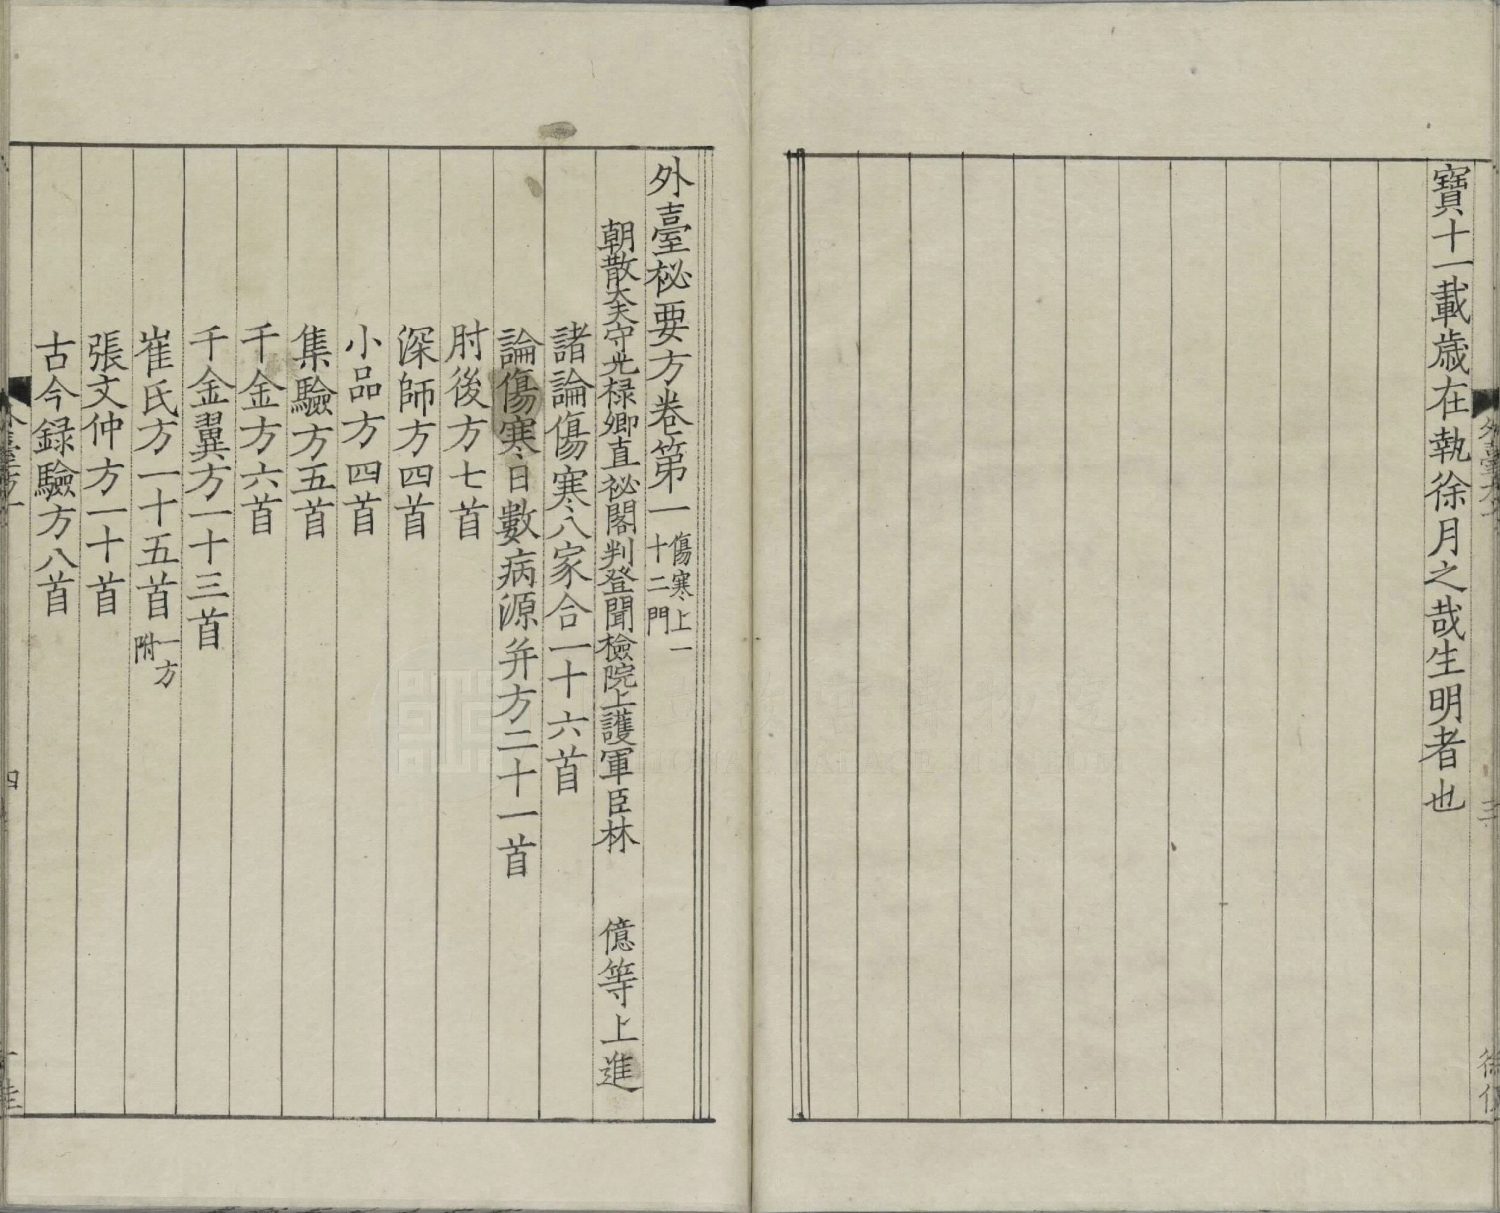 寶十一載歲在執徐月之哉生明者也
外臺祕要方卷第一 傷寒上一十二門
朝散大夫守光祿卿直祕閣判登聞檢院上護軍臣林 億等上進
諸論傷寒八家合一十六首
論傷寒日數病源并方二十一首
肘後方七首
深師方四首
小品方四首
集驗方五首
千金方六首
千金翼方一十三首
崔氏方一十五首 一方附
張文仲方一十首
古今録驗方八首
四